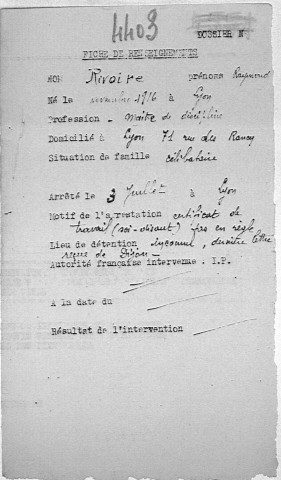 4403
DOSSIER N°
FICHE DE RENSEIGNEMENTS
NOM Rivoire prénoms Raymond
Né le novembre 1916 à Lyon
Profession - Maître de discipline
Domicilié à Lyon 71 rue des Rancy
Situation de famille célibataire
Arrêté le 3 Juillet à Lyon
Motif de l'arrestation certificat de
travail (soi-disant) pas en règle
Lieu de détention inconnu, dernière lettre
reçue de Dijon -
Autorité française intervenue : I.P.
A la date du
Résultat de l'intervention